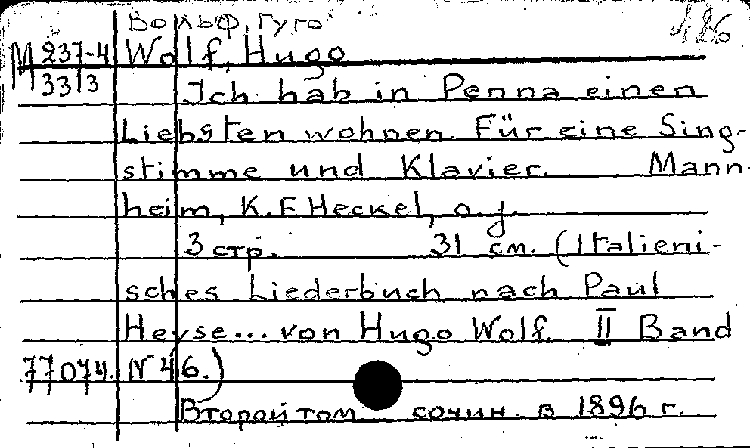 Вольф, Гуго
М 237-4 Wolf, Hugo
3313
Ich hab in Penna einen
Liebsten wohnen. Für eine Sing-
stimme und Klavier. Mann-
heim, K.F. Heckel, o.j.
3 стр. 31 см. (Italieni-
sches Liederbuch nach Paul
Heyse... von Hugo Wolf. II Band
77074. N 46.)
Второй том сочин. в 1896 г.